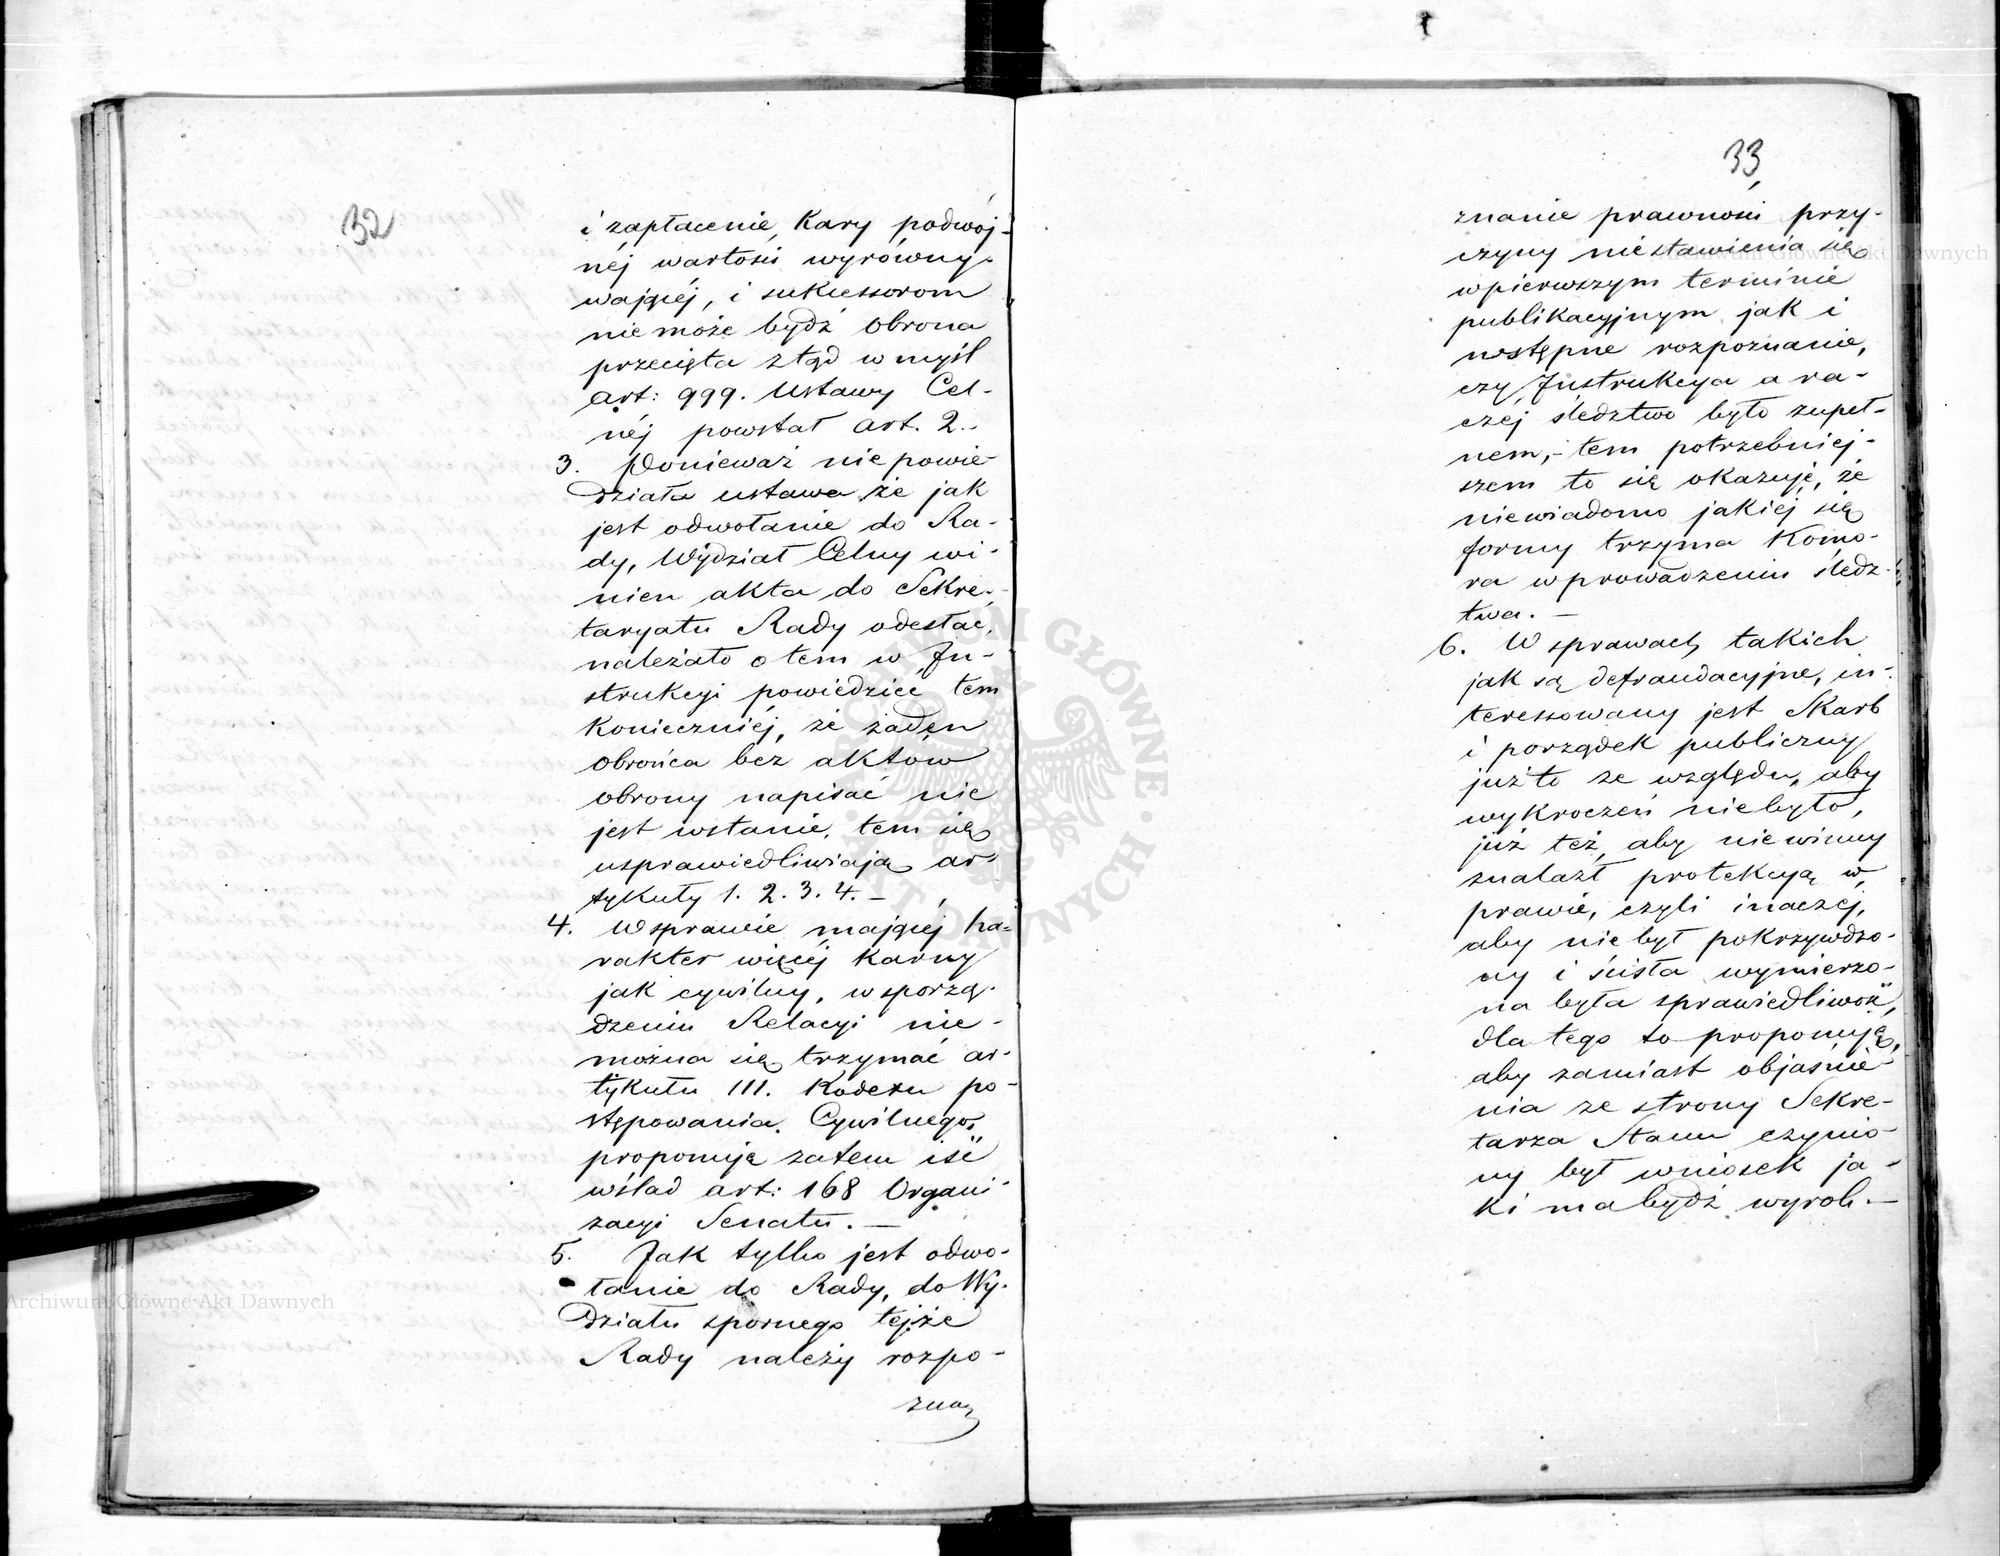 32
i zapłacenie, Kary podwój-
néj wartości wyrówny-
wającéj, i sukcessorom
nie może bydź obrona
przecięta ztąd w myśl
art: 999. Ustawy Cel-
néj powstał art. 2.-
3. Ponieważ nie powie-
działa ustawa że jak
jest odwołanie do Ra-
dy, Wydział Celny wi-
nien akta do Sekre-
taryatu Rady odesłać,
należało o tem w In-
strukcyi powiedzieć tem
Konieczniéj, że żaden
obrońca bez aktów
obrony napisać nie
jest wstanie, tem się
usprawiedliwiają ar-
tykuły 1. 2. 3. 4. -
4. W sprawie mającéj ha-
rakter więcéj Karny
jak cywilny, w sporzą-
dzeniu Relacyi nie-
można się trzymać ar-
tykułu 111. Kodexu po-
stępowania Cywilnego,
proponuję zatem iść
wślad art: 168 Organi-
zacyi Senatu. —
5. Jak tylko jest odwo-
łanie do Rady, do Wy-
działu spornego tejże
Rady należy rozpo-
zna
33
znanie prawności przy-
czyny niestawienia się
wpierwszym terminie
publikacyjnym jak i
wstępne rozpoznanie,
czy Instrukcya a ra-
czéj śledztwo było zupeł-
nem,- tem potrzebniej-
szem to się okazuje, że
niewiadomo jakiéj się
formy trzyma Komo-
ra w prowadzeniu śledz-
twa. —
6. W sprawach takich
jak są defraudacyjne, in-
teressowany jest Skarb
i porządek publiczny
już to ze względu, aby
wykroczeń niebyło,
już też, aby niewinny
znalazł protekcyą w
prawie, czyli inaczéj,
aby nie był pokrzywdzo-
ny i ścisła wymierzo-
na była sprawiedliwość,
dla tego to proponuję,
aby zamiast objaśnie-
nia ze strony Sekre-
tarza Stanu czynio-
ny był wniosek ja-
ki ma bydź wyrok. —
Archiwum Główne Akt Dawnych
Archiwum Główne Akt Dawnych